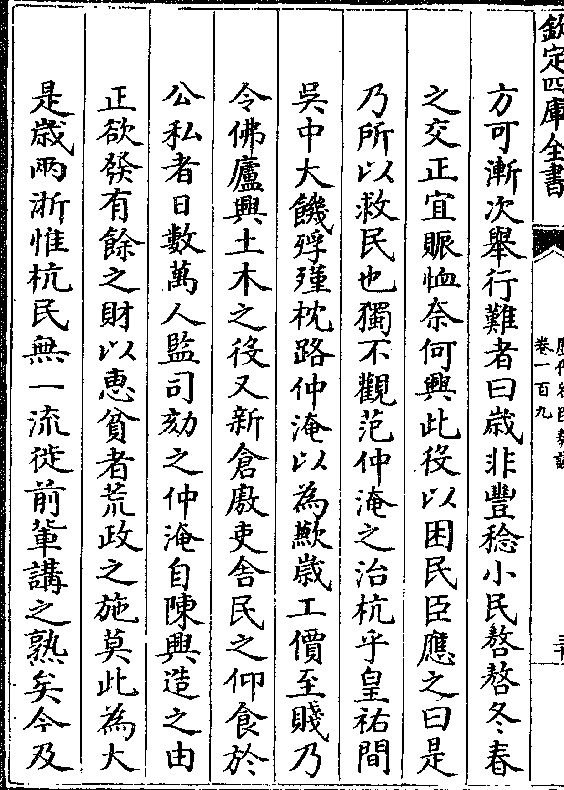 欽定四庫全書
卷一百九
方可漸次舉行難者曰歳非豐稔小民嗸嗸冬春
之交正宜賑恤奈何興此役以困民臣應之曰是
乃所以救民也獨不觀范仲淹之治杭乎皇祐間
吳中大饑殍殣枕路仲淹以為歉歳工價至賤乃
令佛廬興土木之役又新倉廒吏舍民之仰食於
公私者日數萬人監司劾之仲淹自陳興造之由
正欲發有餘之財以恵貧者荒政之施莫此為大
是歳兩浙惟杭民無一流徙前輩講之熟矣今及